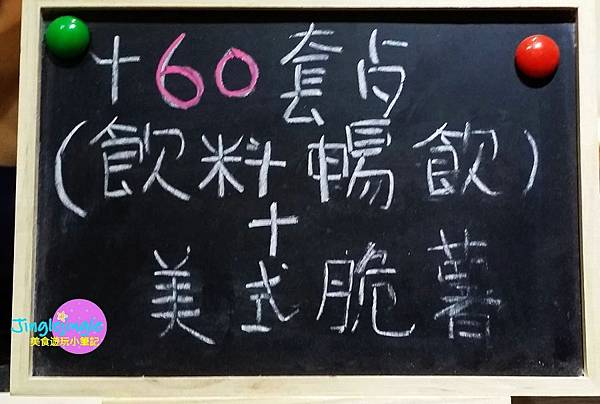 +60套点
(飲料暢飲)
+
美式脆薯
Jinglejingle
美食遊玩小筆記